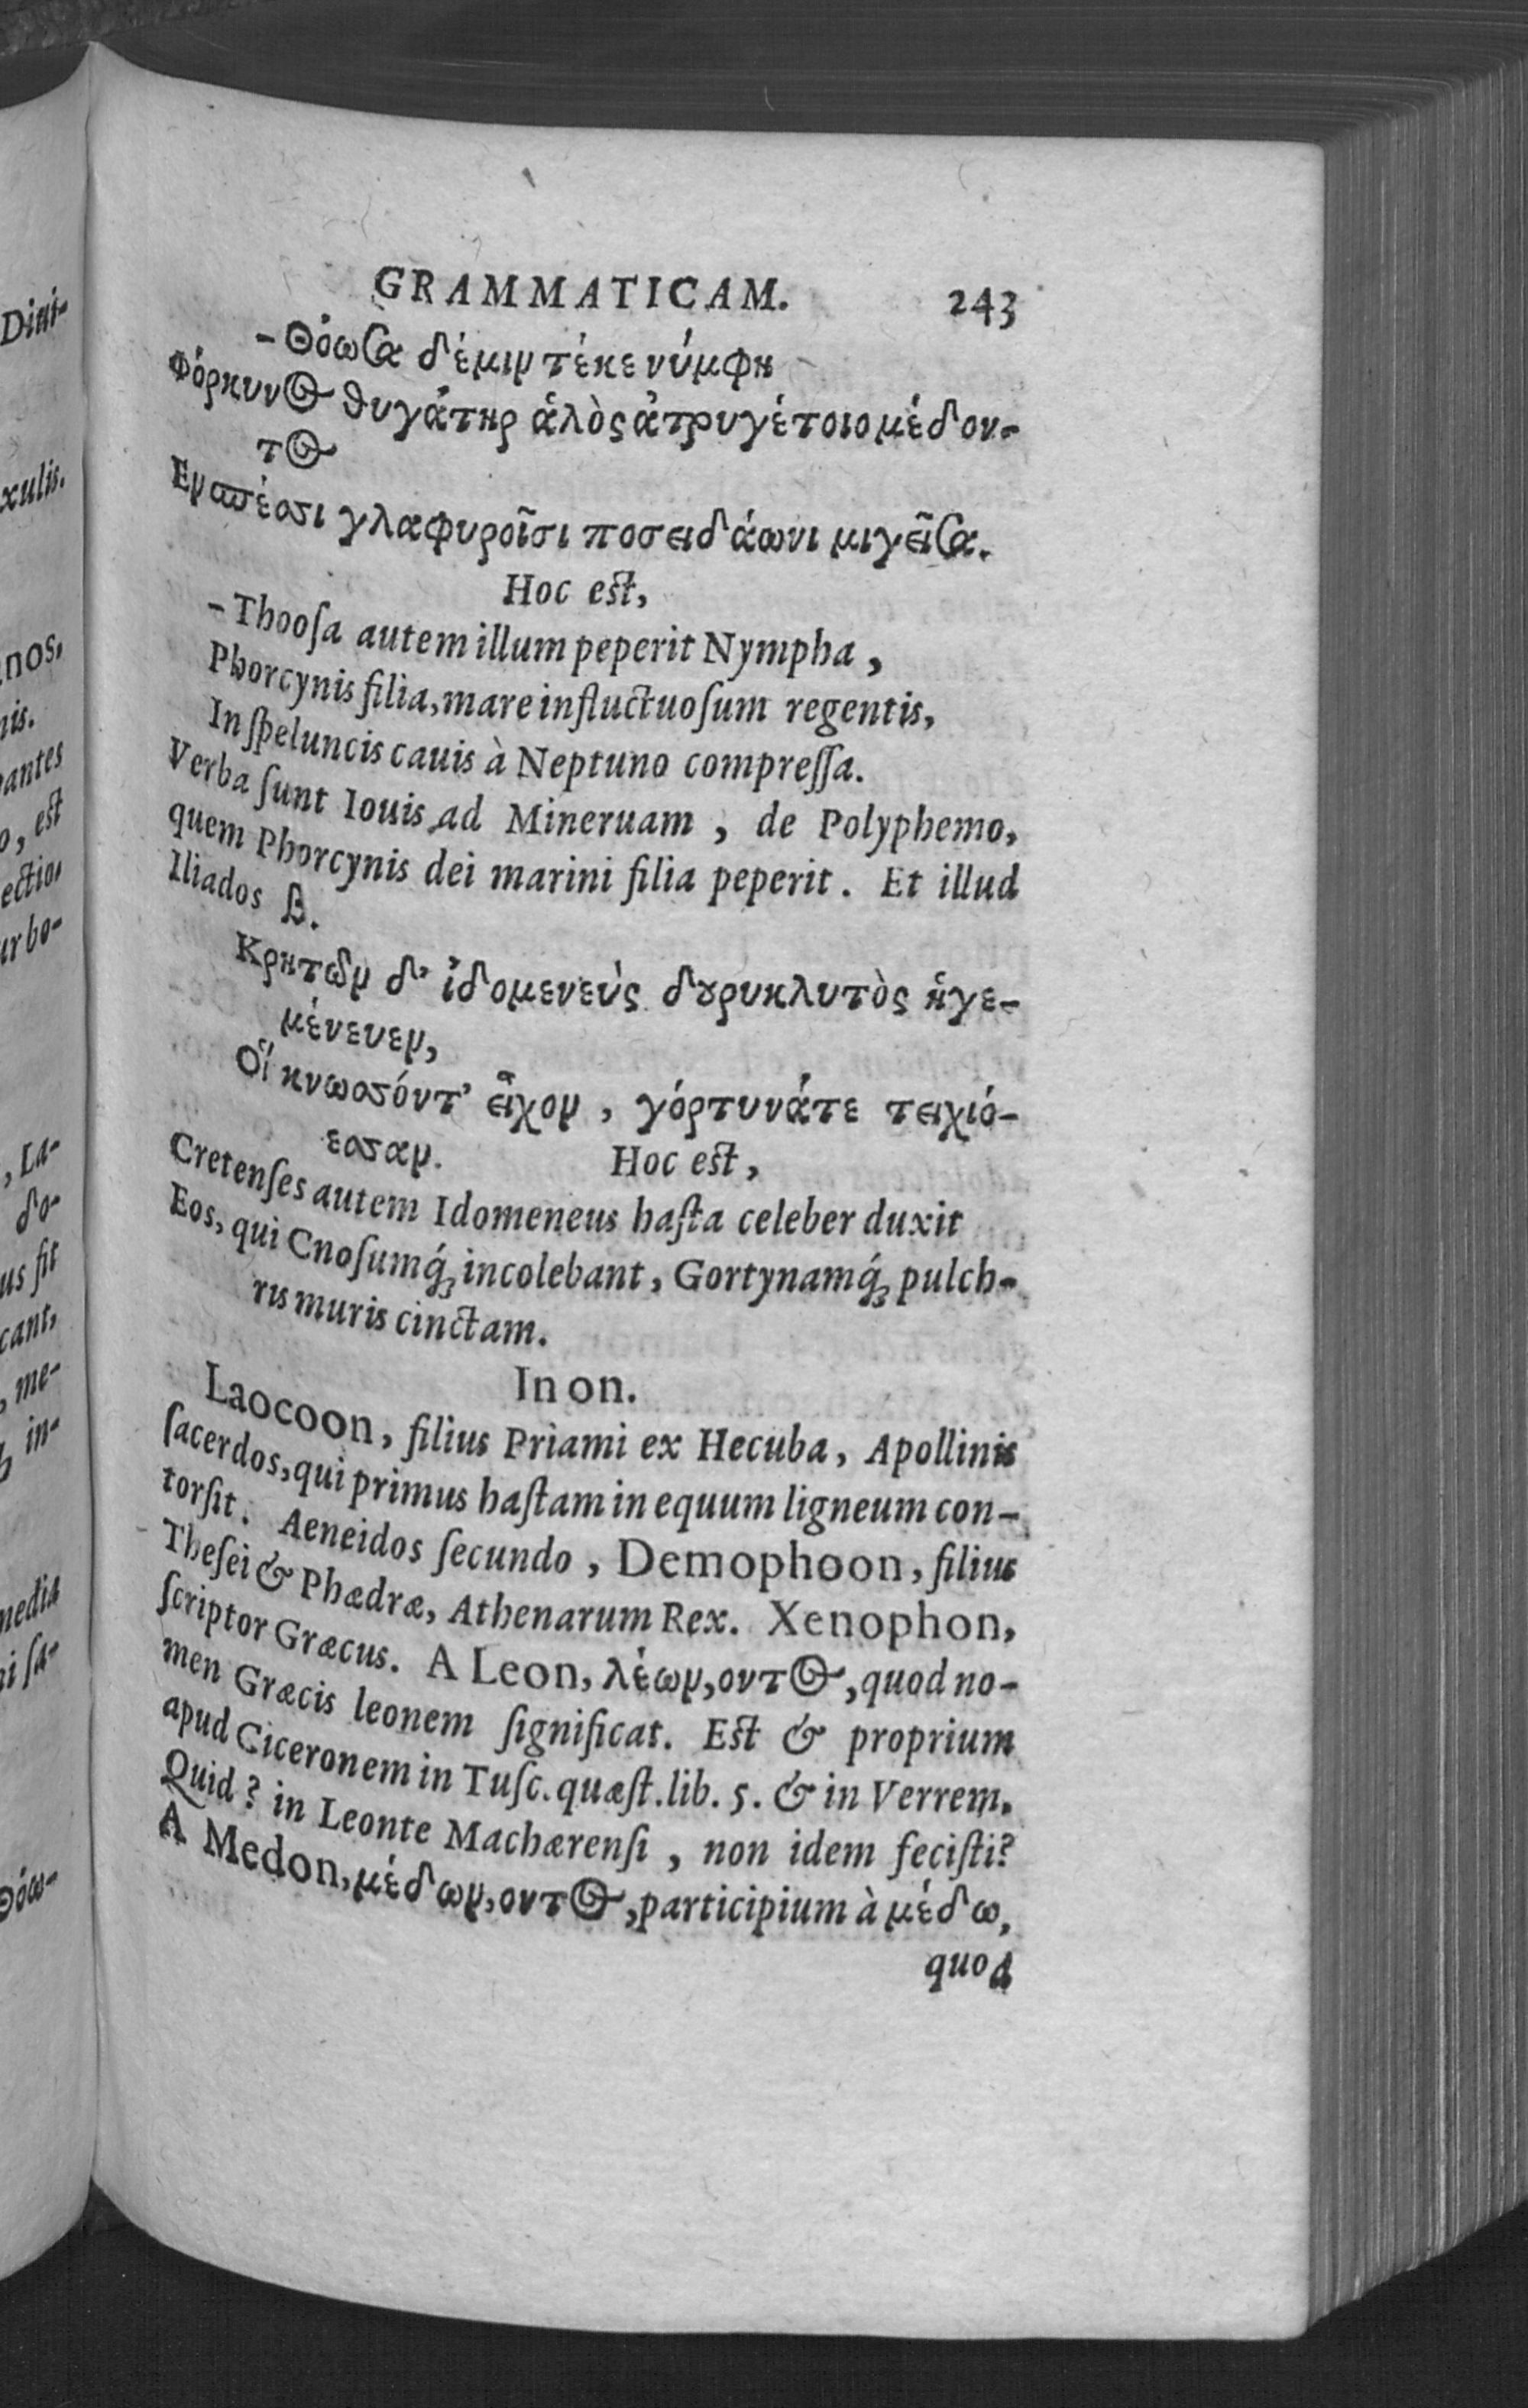 GRAMMATICAM. 243
-Θόωσα δέμιν τέκε νύμφη
Φόρκυνος θυγάτηρ ἁλὸς ἀτρυγέτοιο μέδον-
τος
Εν σπέσσι γλαφυροῖσι ποσειδάωνι μιγεῖσα.
Hoc est,
-Thooſa autem illum peperit Nympha,
Phorcynis filia, mare influctuoſum regentis,
In ſpeluncis cauis à Neptuno compreſſa.
Verba ſunt Iouis ad Mineruam, de Polyphemo,
quem Phorcynis dei marini filia peperit. Et illud
Iliados β.
Κρητῶν δ' ἰδομενεύς δουρυκλυτὸς ἡγε-
μόνευεν,
Οἵ κνωσσόντ' εἶχον, γόρτυνάτε τειχιό-
εσσαν. Hoc est,
Cretenſes autem Idomeneus haſta celeber duxit
Eos, qui Cnoſumq́ꝫ incolebant, Gortynamq́ꝫ pulch-
ris muris cinctam.
In on.
Laocoon, filius Priami ex Hecuba, Apollinis
ſacerdos, qui primus haſtam in equum ligneum con-
torſit. Aeneidos ſecundo, Demophoon, filius
Theſei & Phædræ, Athenarum Rex. Xenophon,
ſcriptor Græcus. A Leon, λέων, οντος, quod no-
men Græcis leonem ſignificat. Est & proprium
apud Ciceronem in Tuſc. quæſt. lib. 5. & in Verrem.
Quid? in Leonte Machærenſi, non idem feciſti?
A Medon, μέδων, οντος, participium à μέδω,
quod